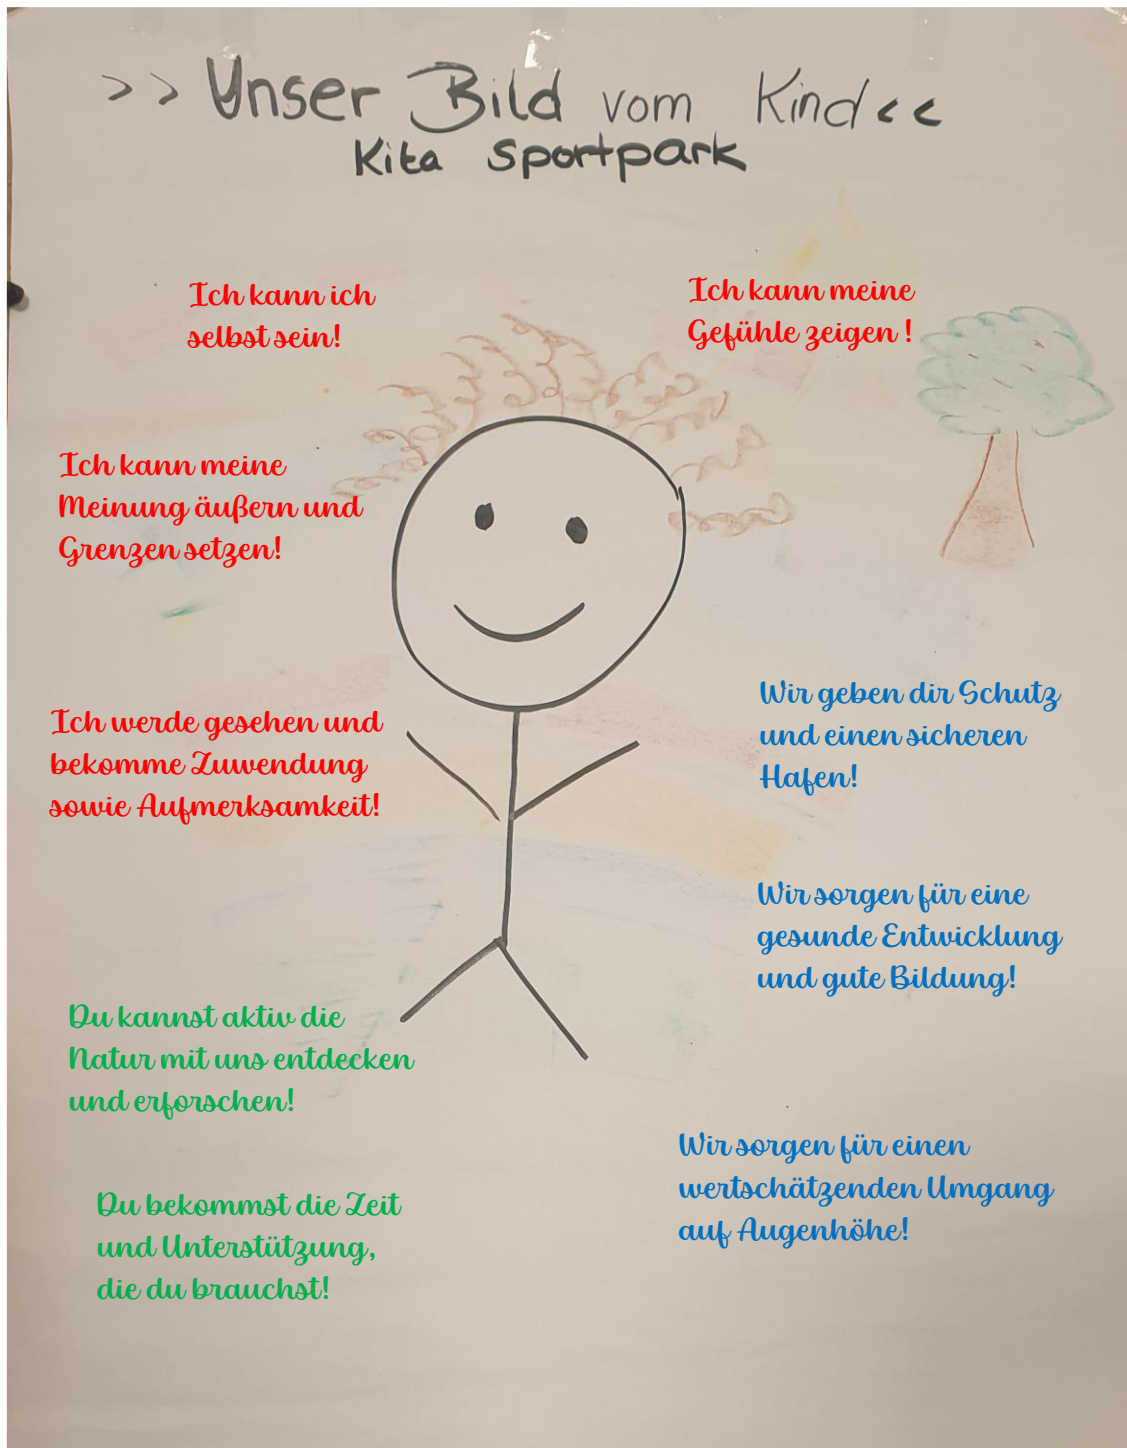 >> Unser Bild vom Kind <<
Kita Sportpark
Ich kann ich
selbst sein!
Ich kann meine
Gefühle zeigen !
Ich kann meine
Meinung äußern und
Grenzen setzen!
Ich werde gesehen und
bekomme Zuwendung
sowie Aufmerksamkeit!
Wir geben dir Schutz
und einen sicheren
Hafen!
Wir sorgen für eine
gesunde Entwicklung
und gute Bildung!
Du kannst aktiv die
Natur mit uns entdecken
und erforschen!
Wir sorgen für einen
wertschätzenden Umgang
auf Augenhöhe!
Du bekommst die Zeit
und Unterstützung,
die du brauchst!